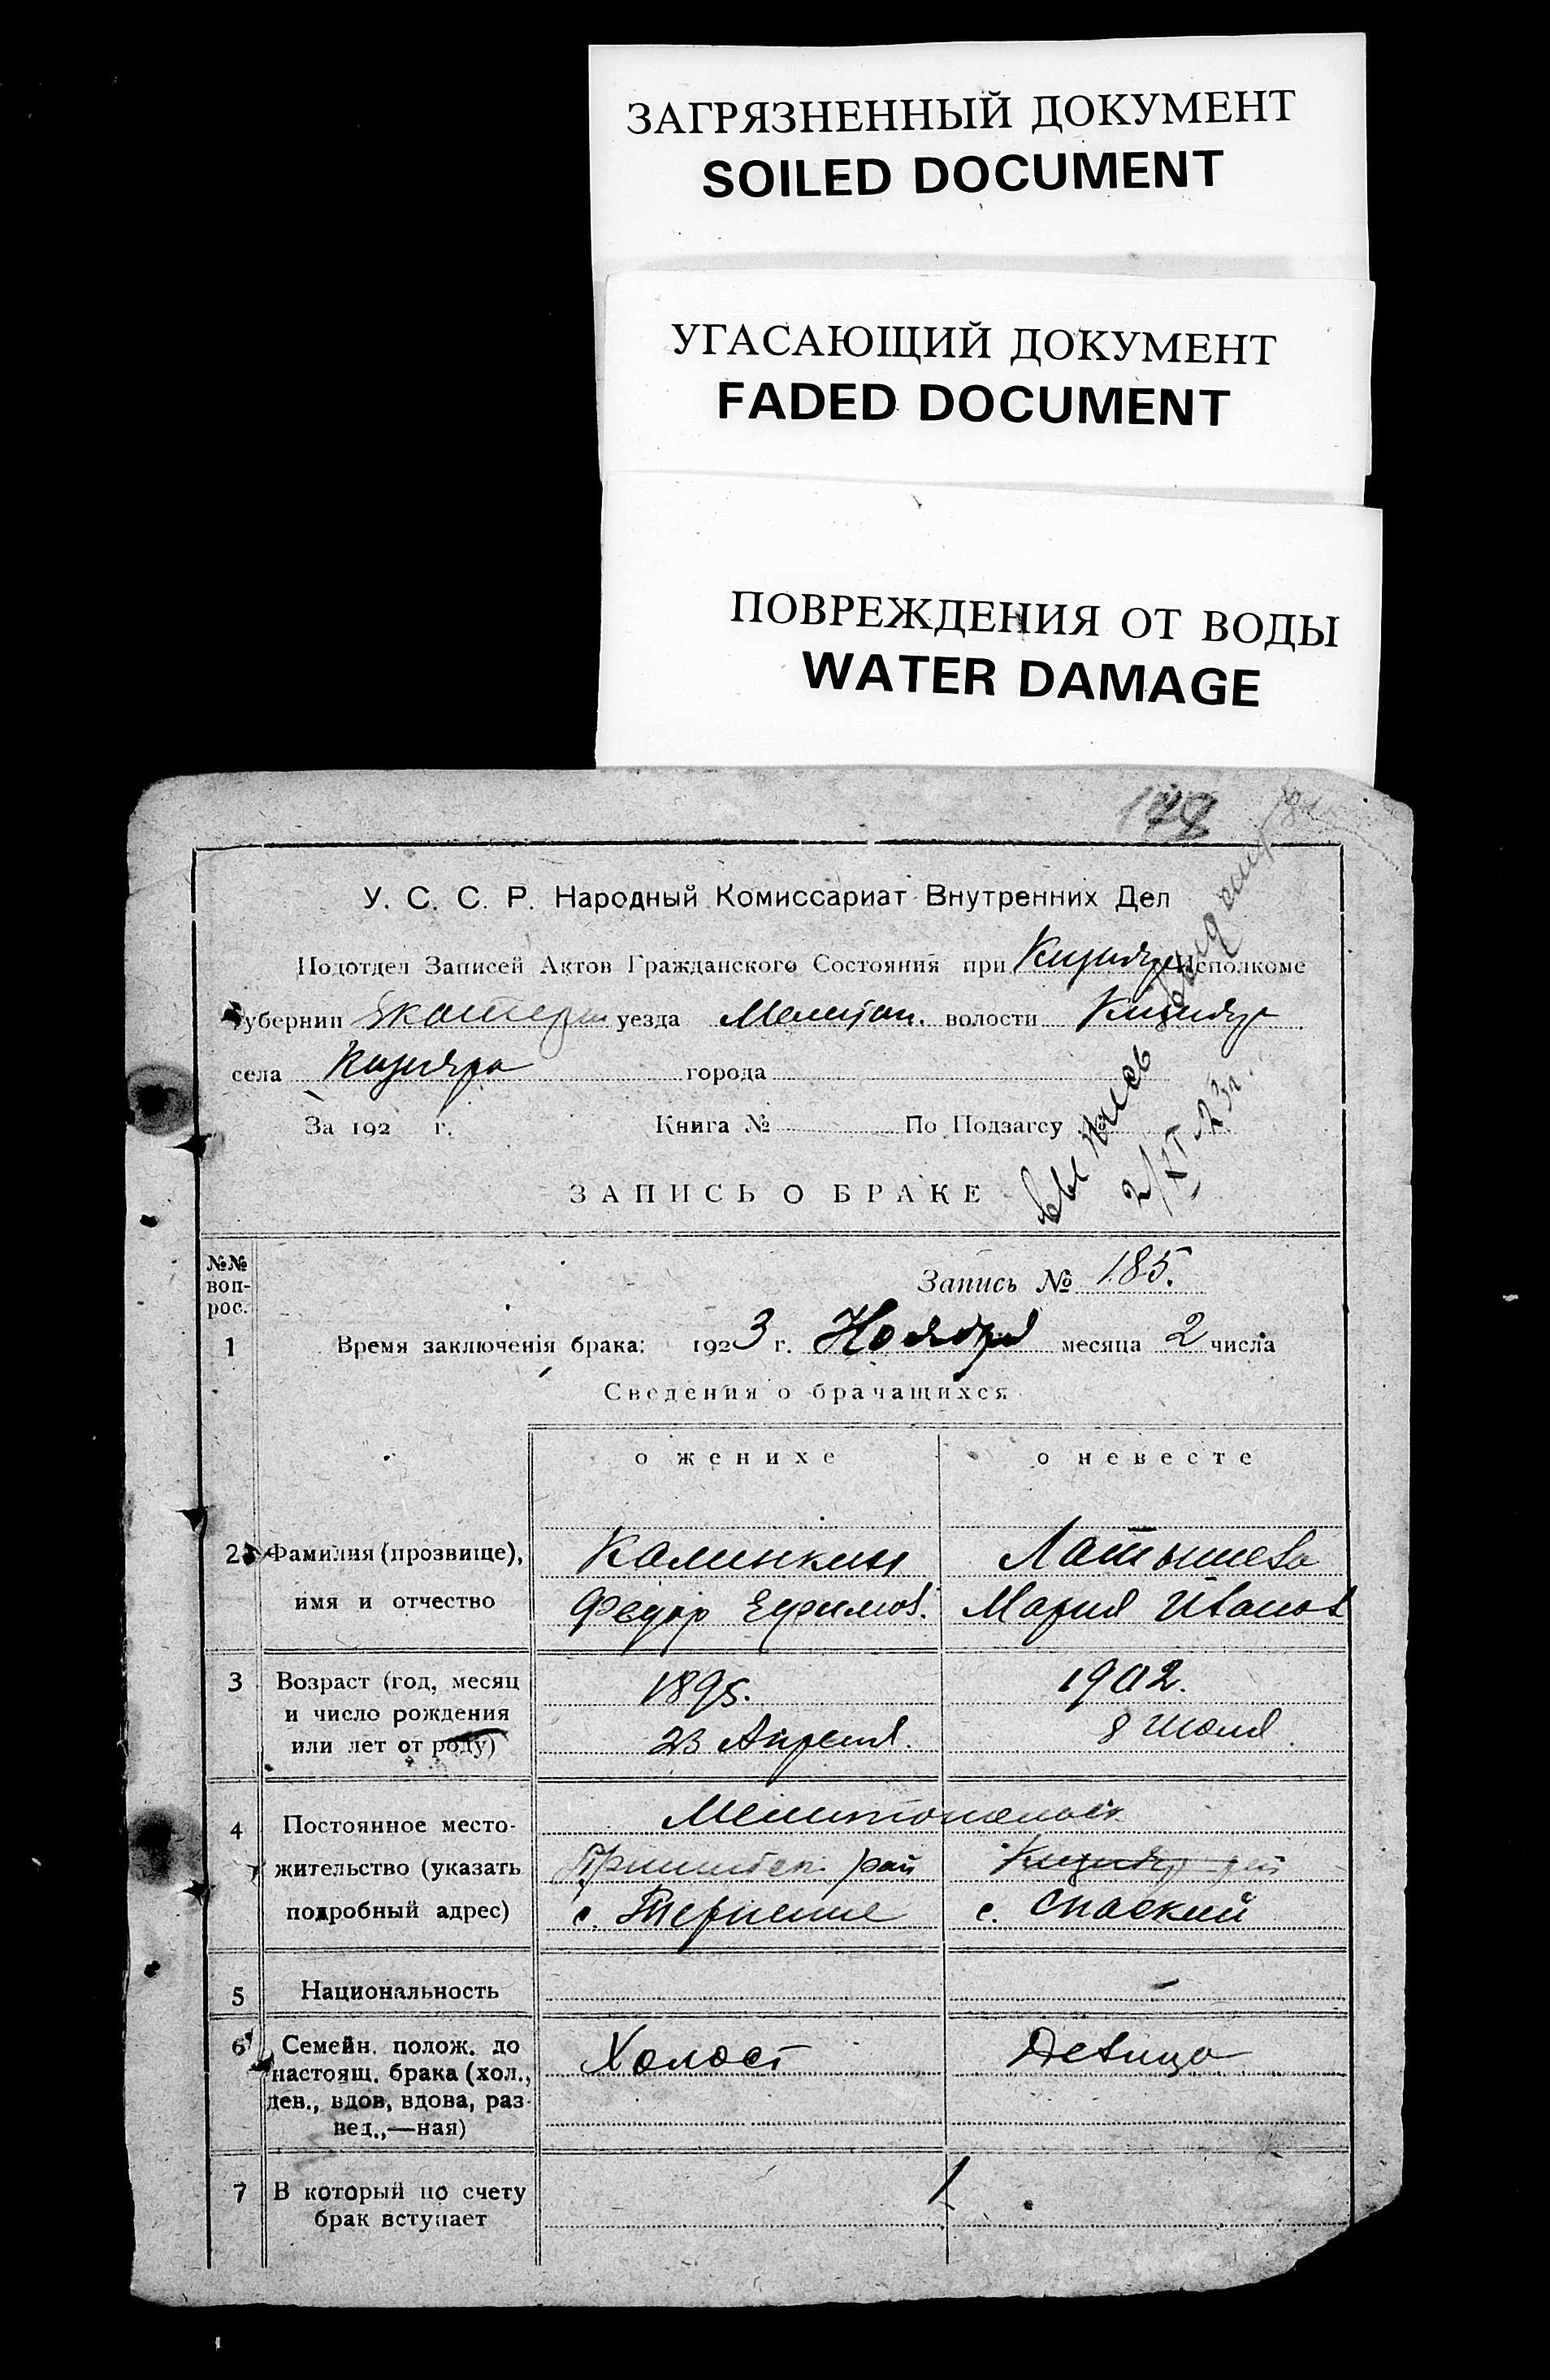 ЗАГРЯЗНЕННЫЙ ДОКУМЕНТ
SOILED DOCUMENT
УГАСАЮЩИЙ ДОКУМЕНТ
FADED DOCUMENT
ПОВРЕЖДЕНИЯ ОТ ВОДЫ
WATER DAMAGE
У. С. С. Р. Народный Комиссариат Внутренних Дел
Подотдел Записей Актов Гражданского Состояния при Кизияр Исполкоме
Губернии Екатерин уезда Мелитоп. волости Кизияр
села Кизияра города
За 192 г. Книга № По Подзагсу №
Выпись выдана
2/XI-23г.
ЗАПИСЬ О БРАКЕ
№№ вопрос.
Запись № 185.
1 Время заключенія брака: 1923 г. Ноября месяца 2 числа
Сведения о брачащихся
о женихе о невесте
2 Фамилия (прозвище), Калинкин Латышева
имя и отчество Федор Ефимов. Мария Иванов
3 Возраст (год, месяц 1895. 1902.
и число рождения
или лет от роду) 23 Апреля. 8 Июля.
4 Постоянное место- Мелитопольск.
жительство (указать рай Кизияр рай
подробный адрес) с. Терпение с. Спаский
5 Национальность -
6 Семейн. полож. до Холост Девица
настоящ. брака (хол.,
дев., вдов, вдова, раз-
вед.,—ная)
7 В который по счету 1
брак вступает